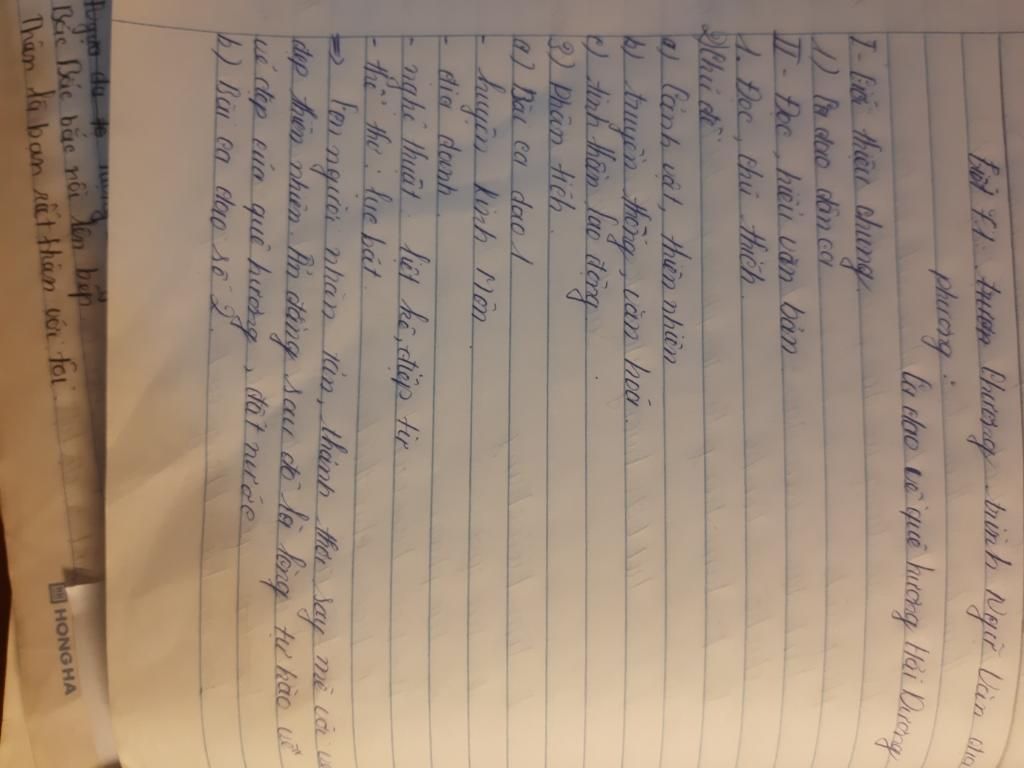 Tiết 71. trương chương trình Ngữ Văn địa
phương:
Ca dao về quê hương Hải Dương
I - Giới thiệu chung
1) Ca dao dân ca
II - Đọc, hiểu văn bản
1. Đọc, chú thích
2) Chủ đề
a) Cảnh vật, thiên nhiên
b) truyền thống, văn hoá
c) tinh thần lao động
3) Phân tích
a) Bài ca dao 1
- huyện Kinh Môn
- địa danh
- nghệ thuật: liệt kê, điệp từ
- thể thơ: lục bát
=> Con người nhàn tản, thảnh thơi say mê với
đẹp thiên nhiên Ẩn đằng sau đó là lòng tự hào về
vẻ đẹp của quê hương, đất nước
b) Bài ca dao số 2
HONG HA
bếp
Bấc bắc nồi lên bếp
là bạn rất thân với tôi.